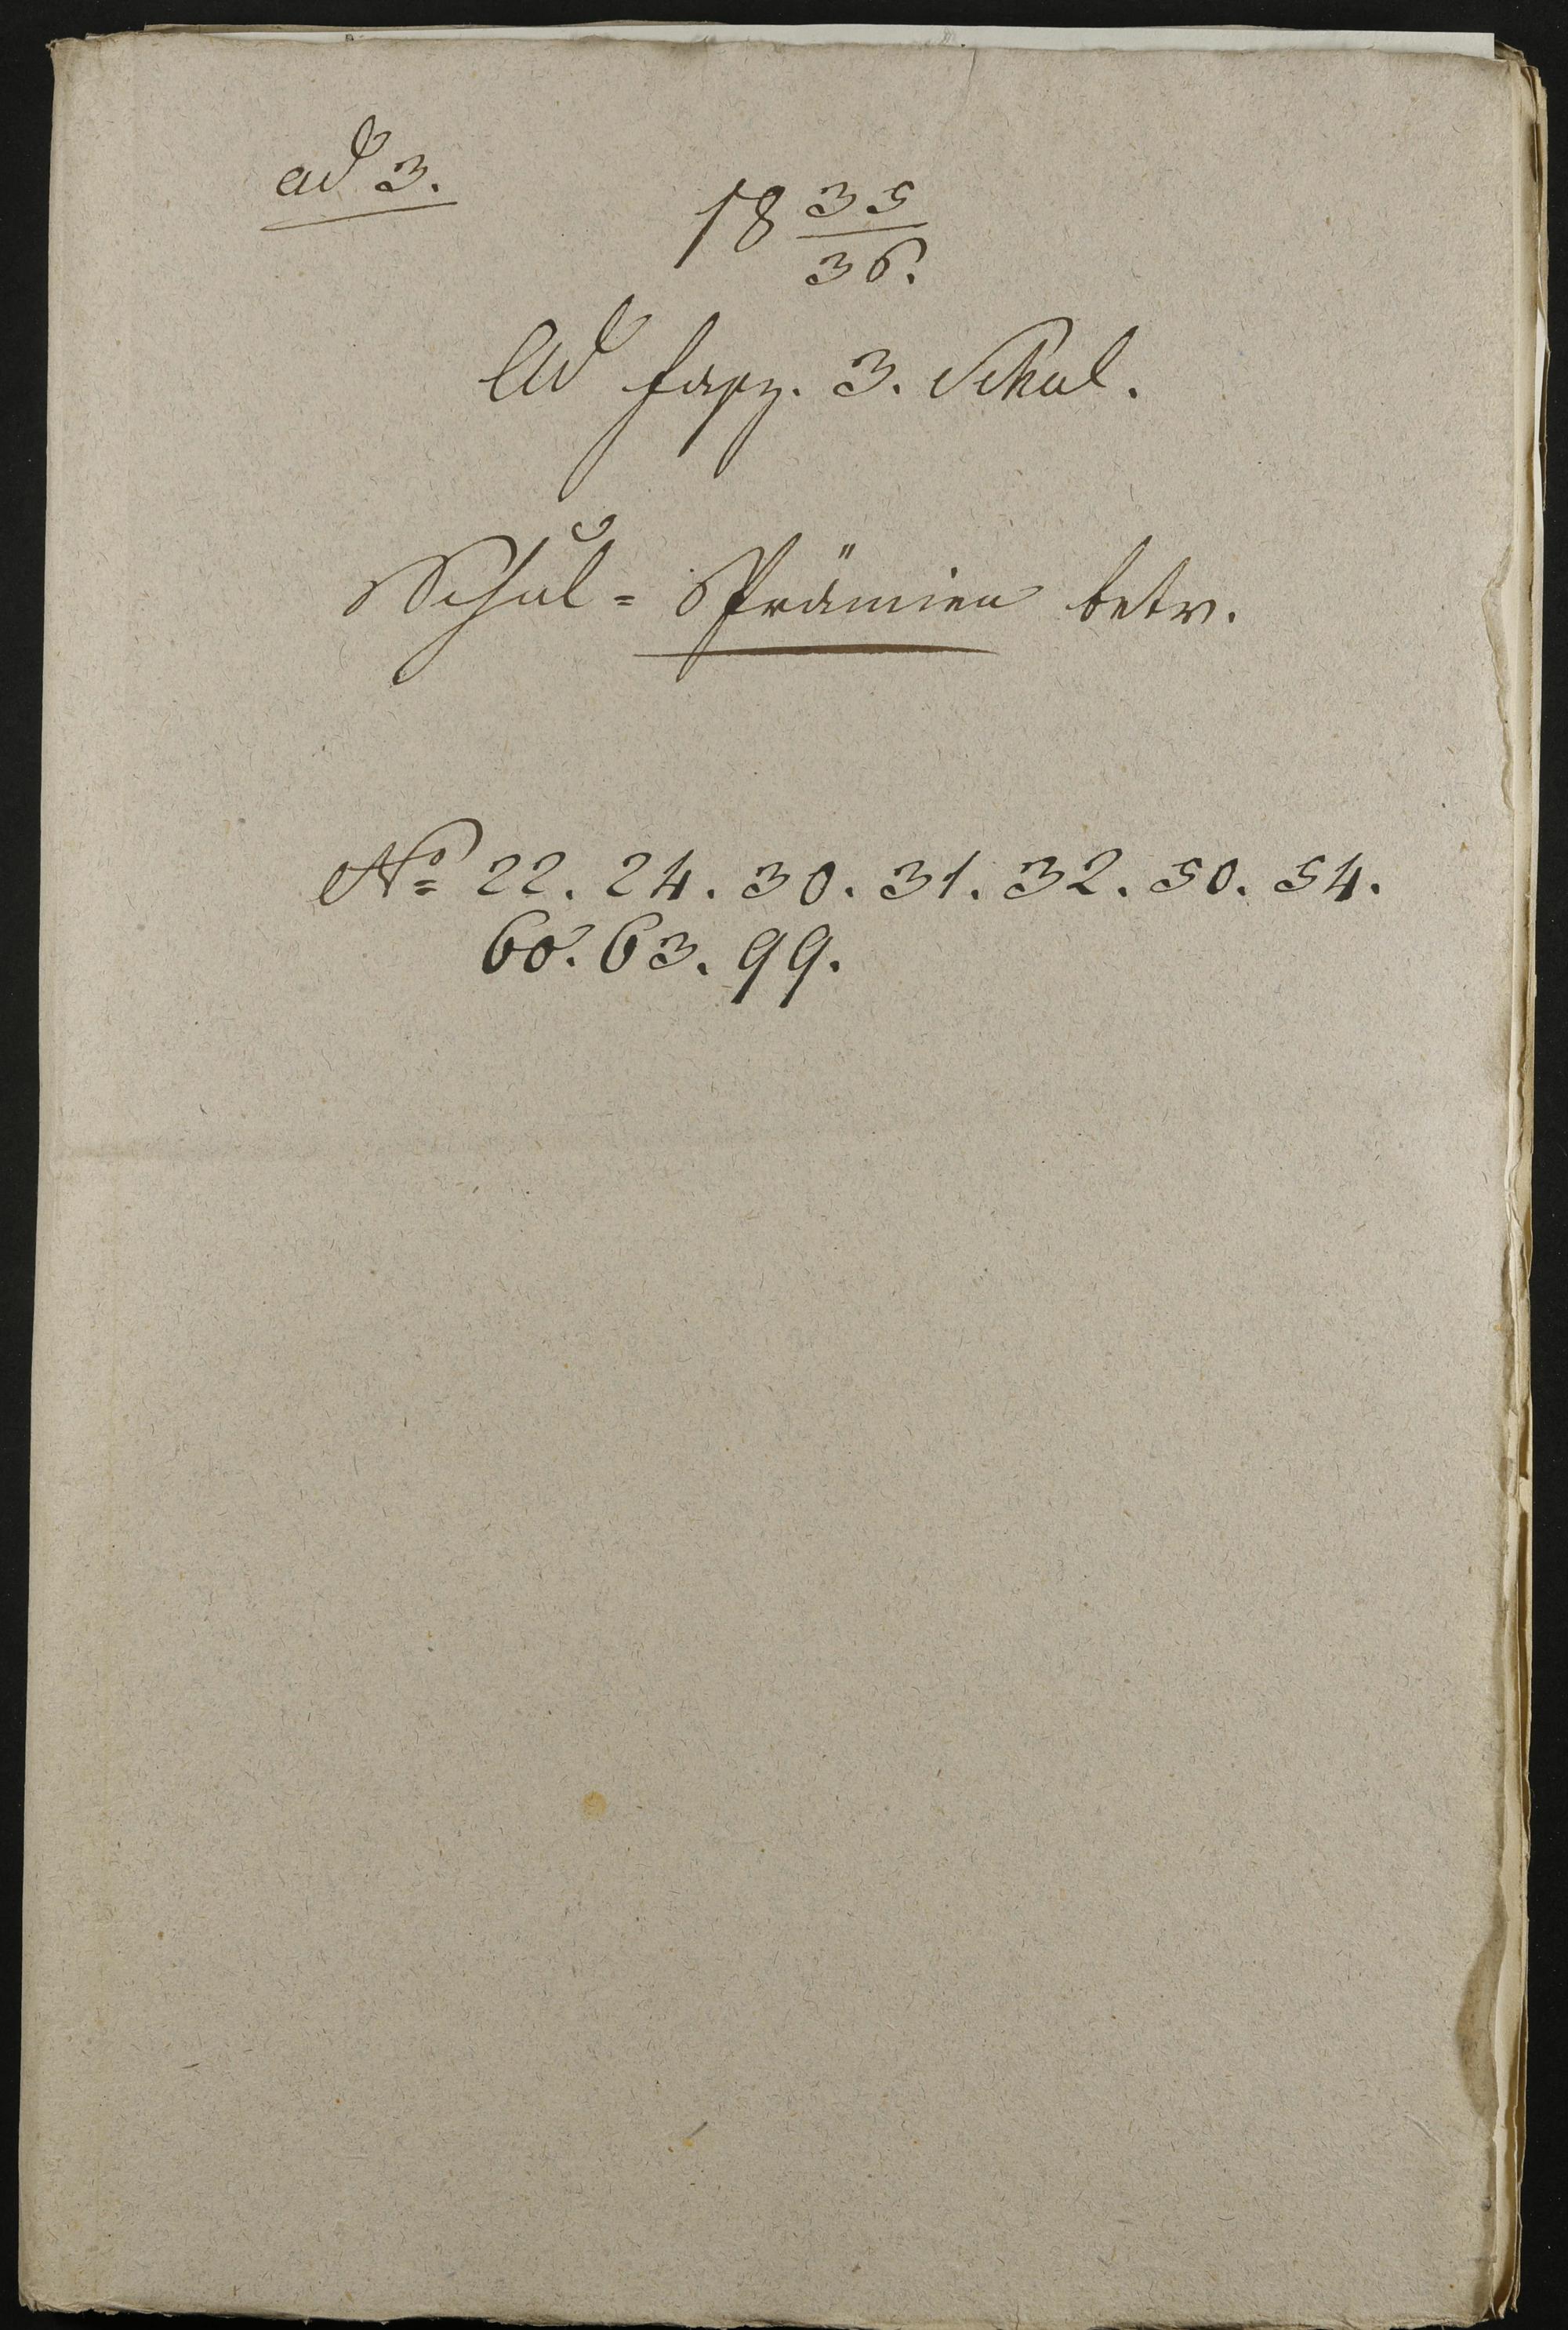 ad 3.
18 35/36.
Ad fasz. 3. Schul.
Schul= Prämien betr.
No 22. 24. 30. 31. 32. 50. 54.
60. 63. 99.